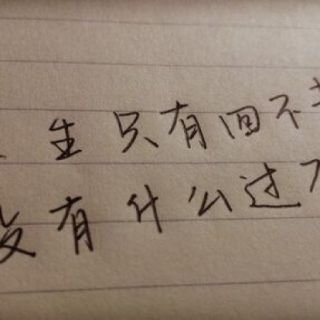 生只有回不
没有什么过不